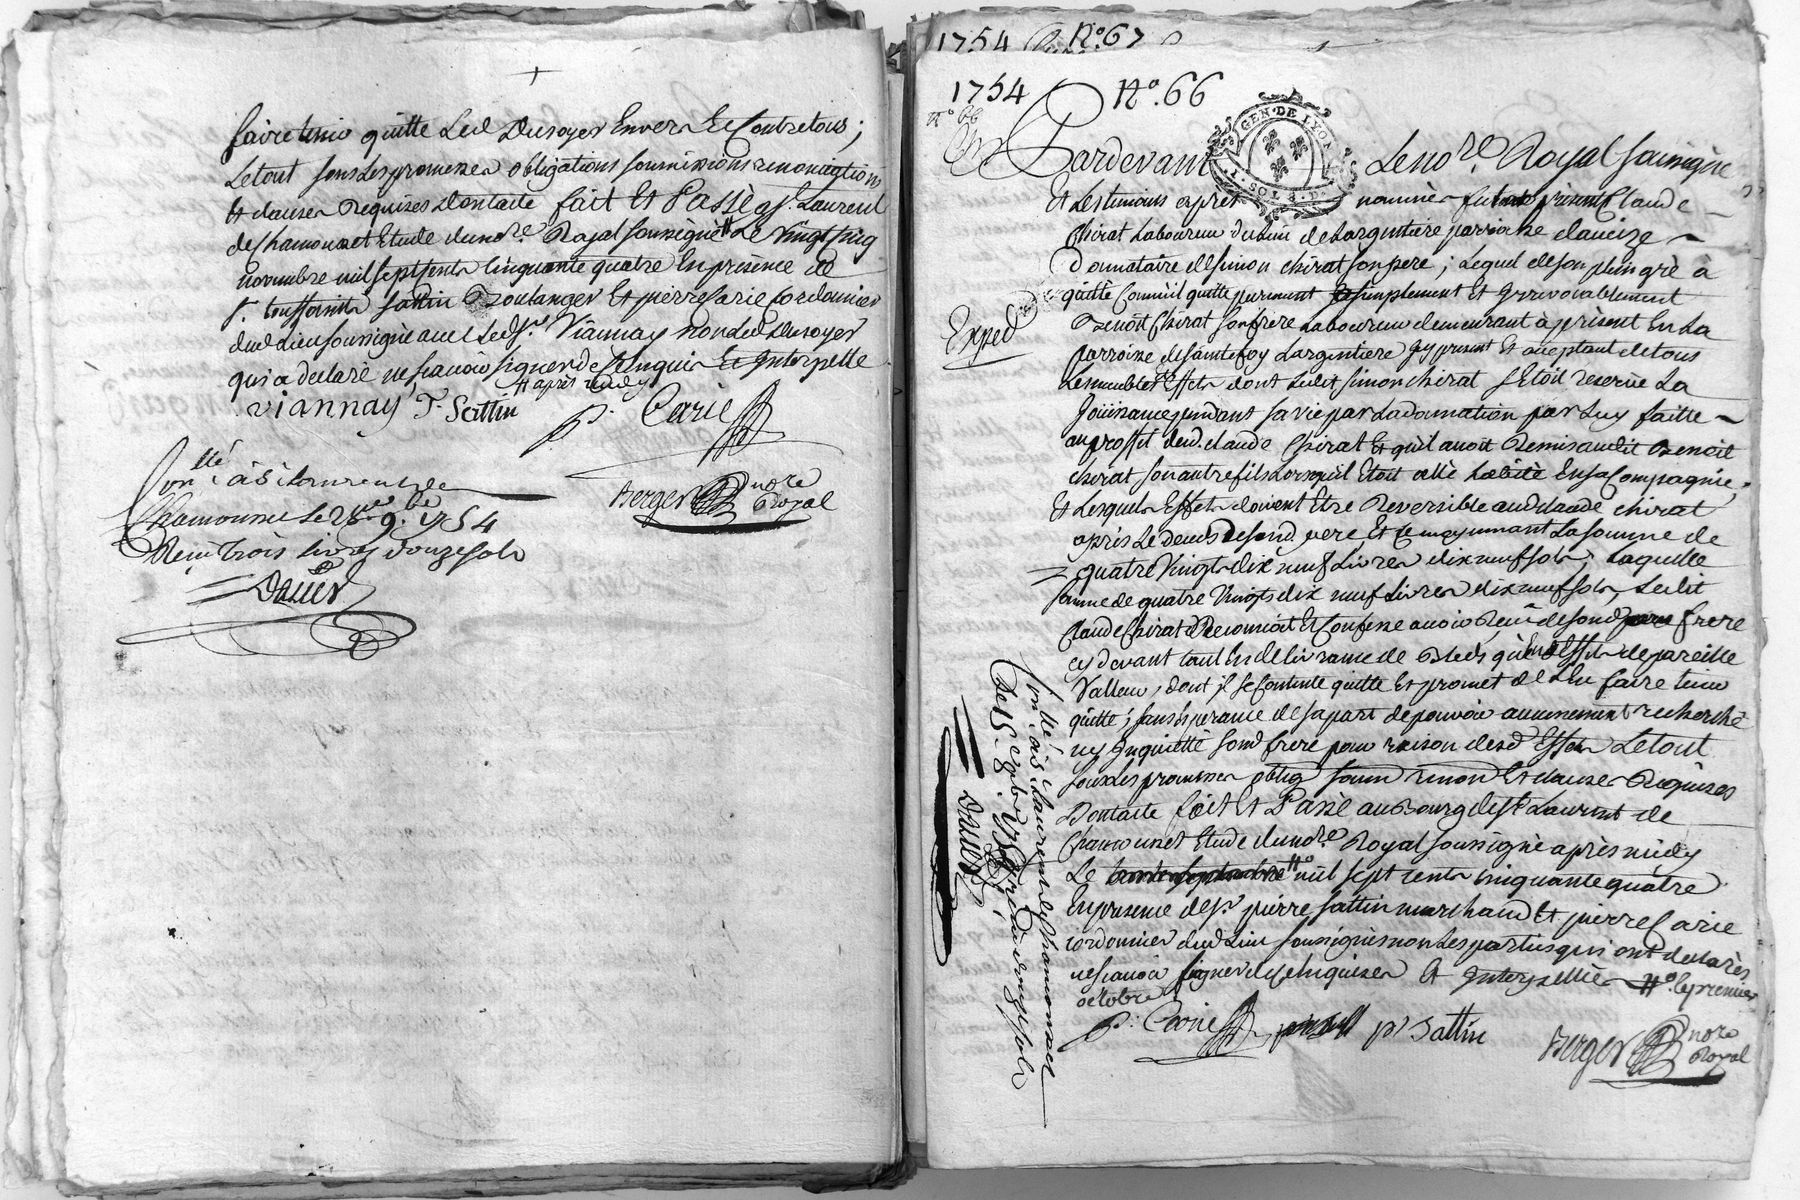 faire tenir quitte Led Dusoyer Envers Et Contre tous ;
Le tout sous Les promesses obligations soumissions renonciations
Et clauses Requises Dont acte fait Et Passé a St. Laurent
de Chamousset Etude du nore. Royal soussigné # Le Vingt cinq
novembre mil sept sents Cinquante quatre En presence de
sr. toussaint sattin Boulanger Et pierre Carie Cordonnier
dud Lieu soussigné avec Led Sr. Viannay non Led Dusoyer
qui a declaré ne scavoir signer de ce Enquis Et Interpellé
# après midy
viannay T. Sattin p. Carie
Berger nore Royal
Con.llé à St Laurent de
Chamousset Le 9.bre 1754
Reçu trois livres douze sols
Dauer
1754 No. 67
1754 No. 66
no 66
GEN. DE LYON
Pardevant Le nore. Royal soussigné
Et Les temoins après nommés fut present Claude
Chirat Laboureur du Lieu de Largentiere parroisse daveize
Donnataire de simon chirat son pere ; Lequel de son plein gré a
quitté Comme il quitte purement simplement Et Irrevocablement
Benoit Chirat son frere Laboureur demeurant à présent En La
parroisse de sainte foy Largentiere Icy present Et acceptant de tous
Les meubles Et Effets dont Ledit simon chirat s'Etoit reservé La
Joüissance pendant sa vie par La donnation par Luy faitte
au proffit dud. claude Chirat Et qu'il avoit Remis audit Benoit
chirat son autre fils Lorsqu'il Etoit allé habité En sa Compagnie,
Et Lesquels Effets doivent Etre Reversible aud claude chirat
après Le deces de sond pere Et ce moyennant La somme de
quatre Vingts dix neuf Livres dix neuf sols ; Laquelle
somme de quatre Vingts dix neuf Livres dix neuf sols, Ledit
Claude Chirat Reconnoit Et Confesse avoir Reçu de sond frere
cy devant tant En delivrance de Bleds qu'En Effets de pareille
Valleur, dont il se Contente quitte Et promet de L'En faire tenir
quitte ; sans Esperance de sa part de pouvoir aucunement recherché
ny Inquietté sond frere pour raison desd Effets Le tout
sous Les promesses oblig soum renon Et clauses Requises
Dont acte fait Et Passé au Bourg de St Laurent de
Chamousset Etude du nore. Royal soussigné après midy
Le #o mil sept cents cinquante quatre
En presence de sr. pierre sattin marchand Et pierre Carie
cordonnier dud Lieu soussignés non Les parties qui ont declarés
ne scavoir signer de ce Enquises Et Interpellés #o Le premier
octobre
p. Carie p. Sattin
Berger nore Royal
Exped
Con.llé à St Laurent de Chamousset
Le 15 8.bre 1754 Reçu douze sols
Dauer